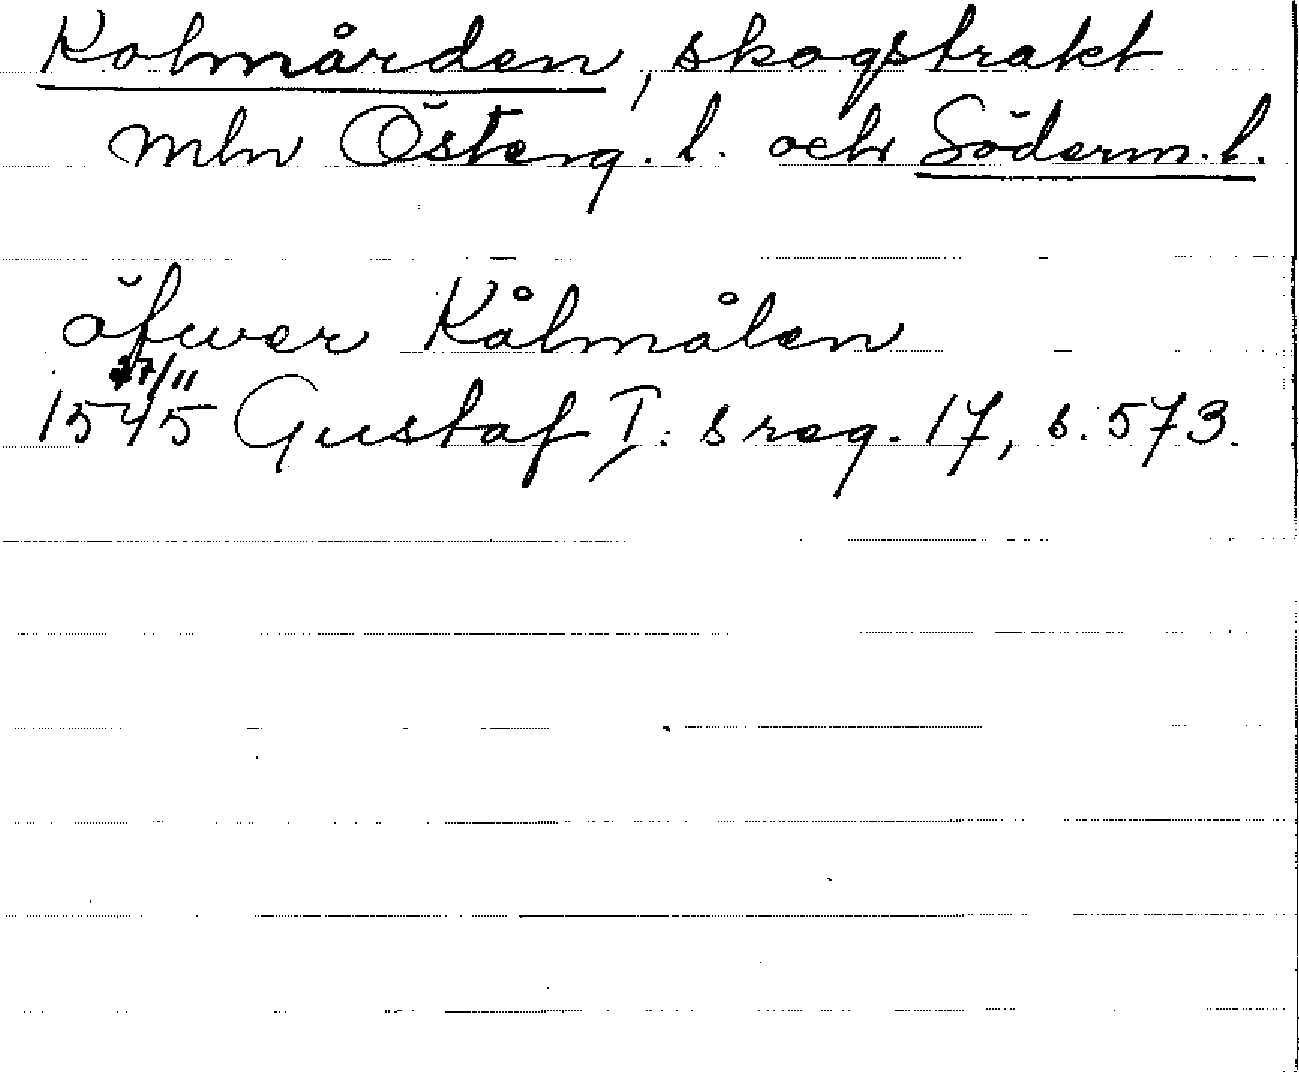 Kolmården, skogstrakt
mln Österg. l. och Söderm. l.
öfwer Kålmålen
27/11
1545 Gustaf I: s reg. 17, s. 573.